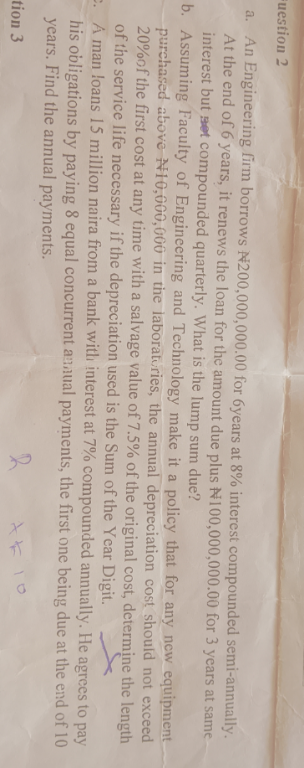 uestion 2
a. An Engineering firm borrows ₦200,000,000.00 for 6years at 8% interest compounded semi-annually.
At the end of 6 years, it renews the loan for the amount due plus ₦100,000,000.00 for 3 years at same
interest but compounded quarterly. What is the lump sum due?
b. Assuming Faculty of Engineering and Technology make it a policy that for any new equipment
purchased above ₦10,000,000 in the laboratories, the annual depreciation cost should not exceed
20%of the first cost at any time with a salvage value of 7.5% of the original cost, determine the length
of the service life necessary if the depreciation used is the Sum of the Year Digit.
c. A man loans 15 million naira from a bank with interest at 7% compounded annually. He agrees to pay
his obligations by paying 8 equal concurrent annual payments, the first one being due at the end of 10
years. Find the annual payments.
tion 3